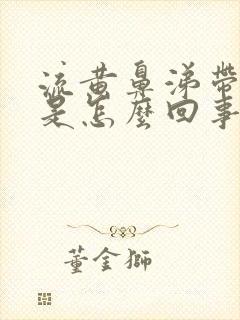 流黄鼻涕带
是怎麼回事
董金獅